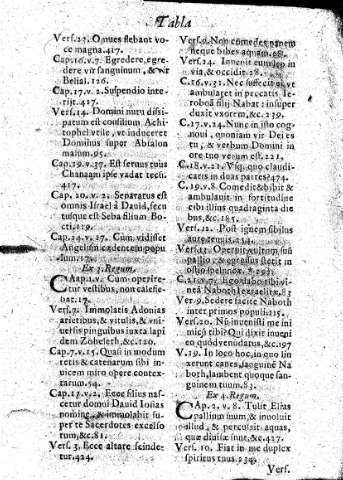 Tabla
Vers. 23. Omnes flebant voce
magna. 417.
Cap. 16. v. 7. Egredere, egre-
dere vir sanguinum, & vir
Belial. 126.
Cap. 17. v. 2. Suspendio inte-
rijt. 417.
Vers. 14. Domini nutu dissi-
patum est consilium Achi-
tophel vtile, vt induceret
Dominus super Absalon
malum. 95.
Cap. 19. v. 37. Est seruus tuus
Chanaam ipse vadat tecũ.
417.
Cap. 20. v. 2. Separatus est
omnis Israel à Dauid, secu-
tusque est Seba filium Bo-
cri. 119.
Cap. 24. v. 17. Cum vidisset
Angelum cædentem popu-
lum.
Ex 3. Regum.
CAap. 1. v. Cum operire-
tur vestibus, non calesie-
bat. 17.
Vers. 9. Immolatis Adonias
arietibus, & vitulis, & vni-
uersis pinguibus iuxta lapi
dem Zoheleth, &c. 120.
Cap. 7. v. 15. Quasi in modum
retis & catenarum sibi in-
uicem miro opere contex-
tarum. 54.
Cap. 13. v. 2. Ecce filius nas-
cetur domui Dauid Iosias
nomine, & immolabit su-
per te Sacerdotes excelso
rum, & c. 81.
Vers. 3. Ecce altare scinde-
tur. 424.
Vers. 9. Non comedes panem
neque bibes aquam.
Vers. 24. Inuenit eum leo in
via, & occidit. 28.
C. 16. v. 31. Nec suffecit ei, vt
ambularet in peccatis Ie-
roboã filij Nabat: insuper
duxit vxorem, &c. 239.
C. 17. v. 24. Nunc in isto cog-
noui, quoniam vir Dei es
tu, & verbum Domini in
ore tuo verum est. 221.
C. 18. v. 21. Vsq. quo claudi-
catis in duas partes? 474.
C. 19. v. 8 Comedit & bibit &
ambulauit in fortitudine
cibi illius quadraginta die
bus, &c. 185.
Vers. 12. Post ignem sibilus
auræ tenuis. 234.
Vers. 13. Operuit vultum suũ
pallio, & egressus stetit in
ostio speluncæ. 293.
C. 21. v. 7. Ego dabo tibi vi-
neã Naboth Iezraelitæ. 83
Ver. 9. Sedere facite Naboth
inter primos populi. 215.
Vers. 20. Nũ inuenisti me ini
micũ tibi? Qui dixit inueni
eo quòd venũdatus, &c. 197
V. 19. In loco hoc, in quo lin
xerunt canes sanguinẽ Na
both, lambent quoque san-
guinem tuum. 83.
Ex 4. Regum.
CAp. 2. v. 8. Tulit Elias
pallium suum, & inuoluit
illud, & percussit aquas,
quæ diuisæ sunt, &c. 427.
Vers. 10. Fiat in me duplex
spiritus tuus. 234.
Vers.